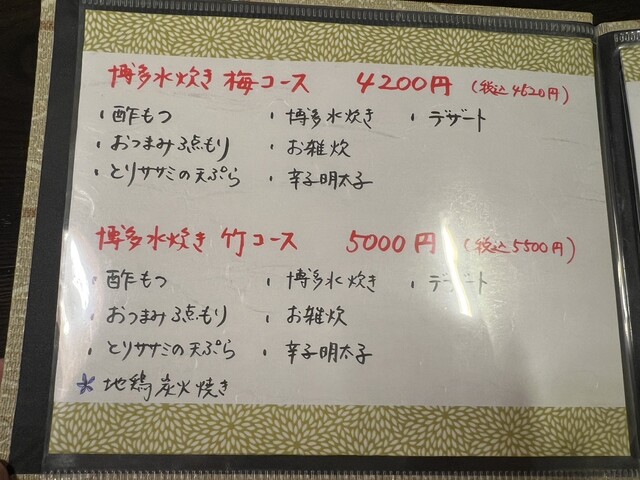 博多水炊き 梅コース 4200円 (税込4620円)
・酢もつ ・博多水炊き ・デザート
・おつまみ3点もり ・お雑炊
・とりササミの天ぷら ・辛子明太子
博多水炊き 竹コース 5000円 (税込5500円)
・酢もつ ・博多水炊き ・デザート
・おつまみ3点もり ・お雑炊
・とりササミの天ぷら ・辛子明太子
* 地鶏炭火焼き